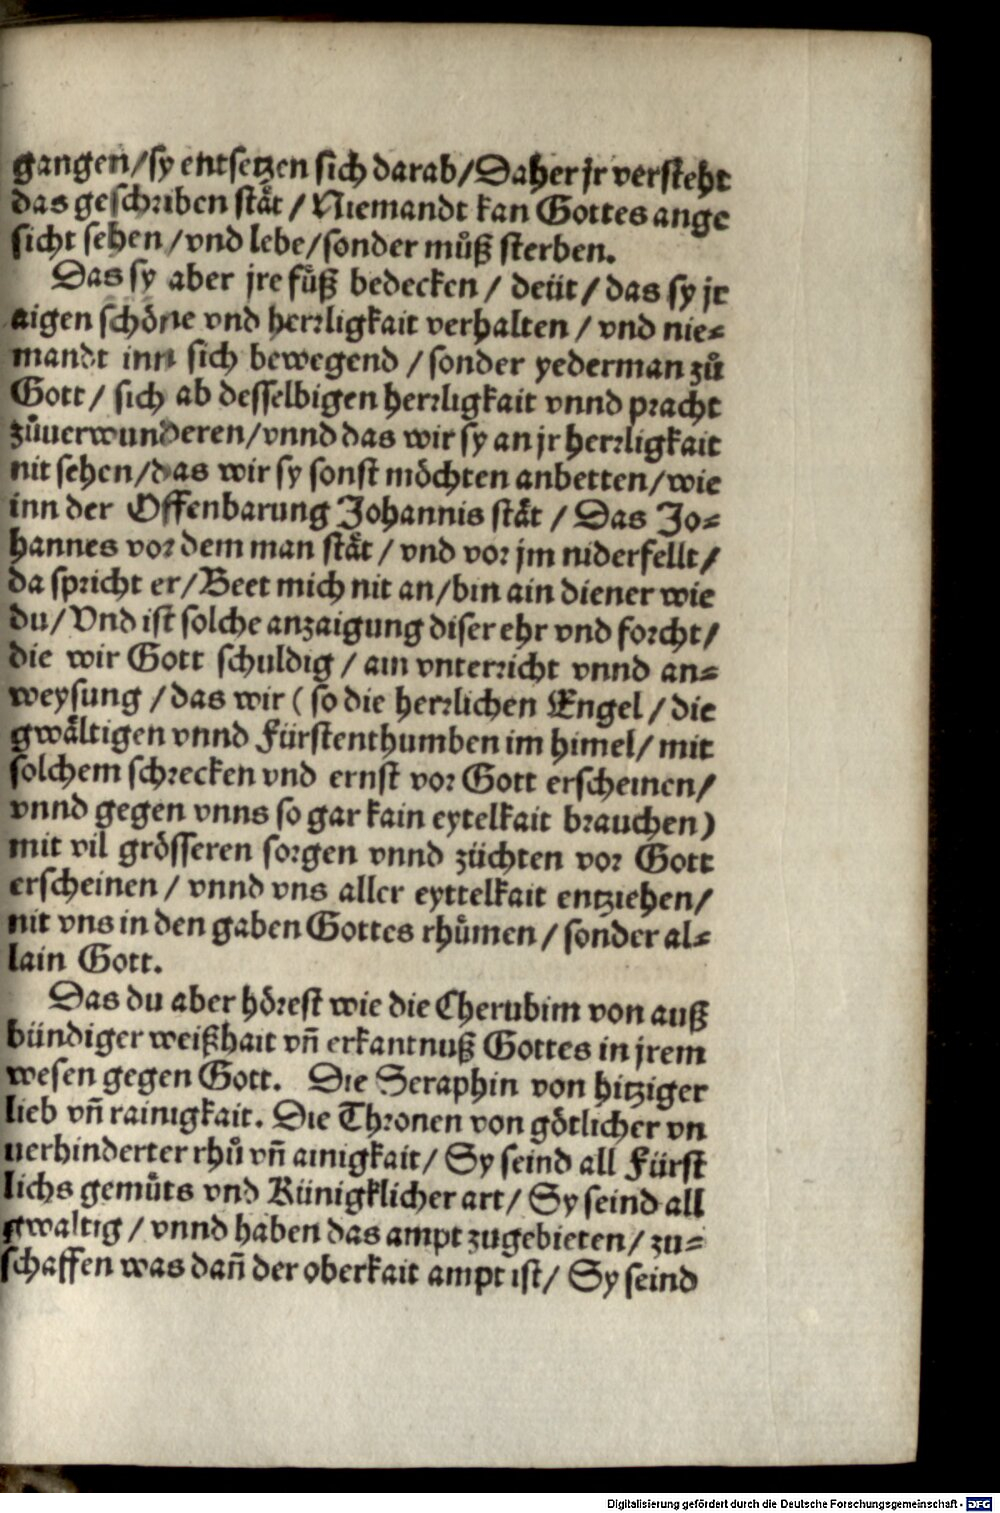 gangen/sy entsetzen sich darab/Daher jr versteht
das geschriben stât / Niemandt kan Gottes ange
sicht sehen/vnd lebe/sonder můß sterben.
Das sy aber jre fůß bedecken / deüt/ das sy jr
aigen schöne vnd herrligkait verhalten / vnd nie⸗
mandt inn sich bewegend / sonder yederman zů
Gott/ sich ab desselbigen herrligkait vnnd pracht
zůuerwunderen/vnnd das wir sy an jr herrligkait
nit sehen/das wir sy sonst möchten anbetten/wie
inn der Offenbarung Johannis stât / Das Jo⸗
hannes vor dem man stât / vnd vor jm niderfellt/
da spricht er/Beet mich nit an/bin ain diener wie
du/ Vnd ist solche anzaigung diser ehr vnd forcht/
die wir Gott schuldig / ain vnterricht vnnd an⸗
weysung /das wir ( so die herrlichen Engel / die
gwältigen vnnd Fürstenthumben im himel/ mit
solchem schrecken vnd ernst vor Gott erscheinen/
vnnd gegen vnns so gar kain eytelkait brauchen)
mit vil grösseren sorgen vnnd züchten vor Gott
erscheinen / vnnd vns aller eyttelkait entziehen/
nit vns in den gaben Gottes rhůmen / sonder al⸗
lain Gott.
Das du aber hörest wie die Cherubim von auß
bündiger weißhait vñ erkantnuß Gottes in jrem
wesen gegen Gott. Die Seraphin von hitziger
lieb vñ rainigkait. Die Thronen von götlicher vn
uerhinderter rhů vñ ainigkait/ Sy seind all Fürst
lichs gemůts vnd Künigklicher art/ Sy seind all
gwaltig / vnnd haben das ampt zugebieten/ zu⸗
schaffen was dañ der oberkait ampt ist/ Sy seind
Digitalisierung gefördert durch die Deutsche Forschungsgemeinschaft - DFG